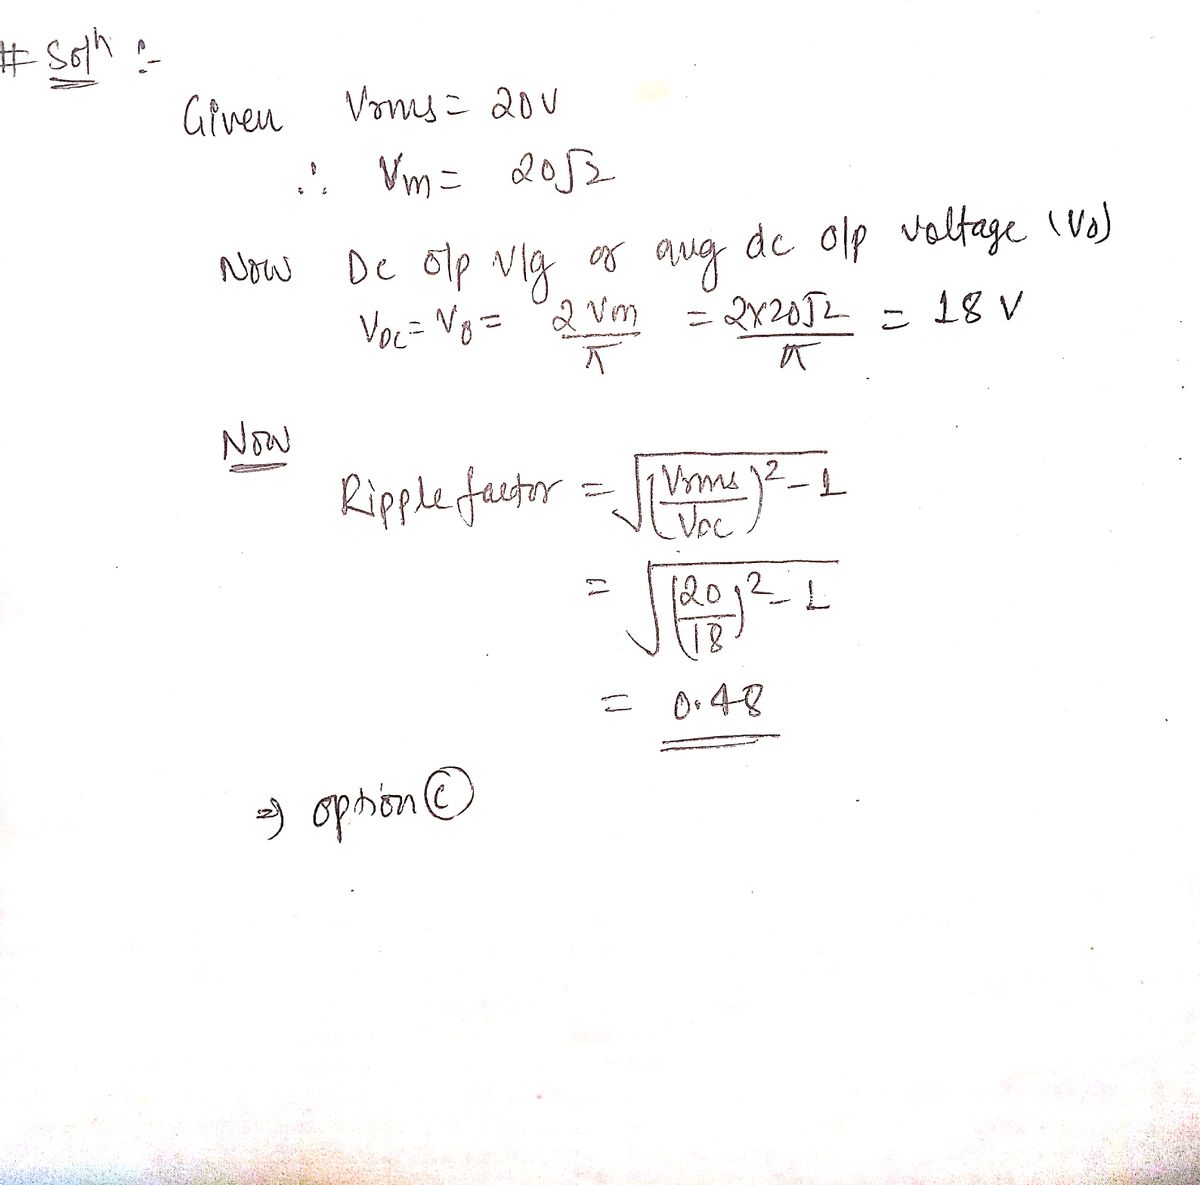 # Solⁿ :-
Given Vrms = 20V
∴ Vm = 20√2
Now Dc o/p V/g or avg dc o/p voltage (V0)
VDC = V0 = 2Vm/π = 2x20√2/π = 18 V
Now
Ripple factor = √((Vrms/VDC)² - 1)
= √((20/18)² - 1)
= 0.48
⇒ option (C)